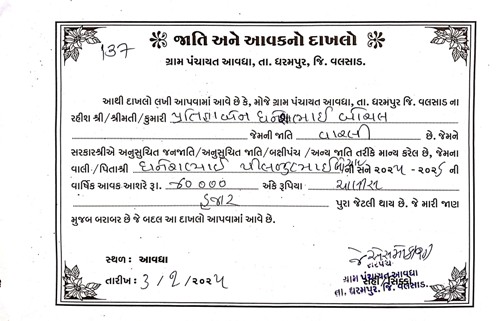 137
જાતિ અને આવકનો દાખલો
ગ્રામ પંચાયત આવધા, તા. ધરમપુર, જિ. વલસાડ.
આથી દાખલો લખી આપવામાં આવે છે કે, મોજે ગ્રામ પંચાયત આવધા, તા. ધરમપુર જિ. વલસાડ ના
રહીશ શ્રી/શ્રીમતી/કુમારી
જેમની જાતિ વારલી છે, જેમને
સરકારશ્રીએ અનુસુચિત જનજાતિ/અનુસુચિત જાતિ/બક્ષીપંચ /અન્ય જાતિ તરીકે માન્ય કરેલ છે, જેમના
વાલી/પિતાશ્રી ની સને ૨૦૨૫ - ૨૦૨૬ ની
વાર્ષિક આવક આશરે રૂા. ૪૦૦૦૦ અંકે રૂપિયા ચાલીસ
હજાર પુરા જેટલી થાય છે. જે મારી જાણ
મુજબ બરાબર છે જે બદલ આ દાખલો આપવામાં આવે છે.
સ્થળ : આવધા
તારીખ : 3/ /૨૦૨૫
સરપંચ
ગ્રામ પંચાયત આવધા
તા. ધરમપુર, જિ. વલસાડ.